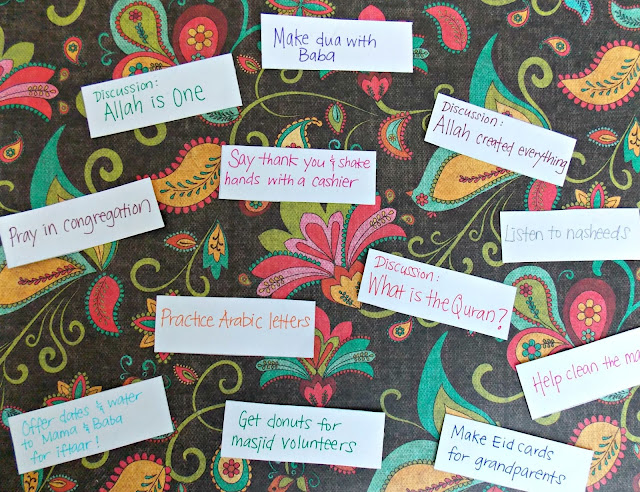 Make dua with
Baba
Discussion:
Allah is One
Discussion:
Allah created everything
Say thank you & shake
hands with a cashier
Pray in congregation
Listen to nasheeds
Discussion:
What is the Quran?
Practice Arabic letters
Help clean the
Offer dates & water
to Mama & Baba
for iftaar!
Get donuts for
masjid volunteers
Make Eid cards
for grandparents